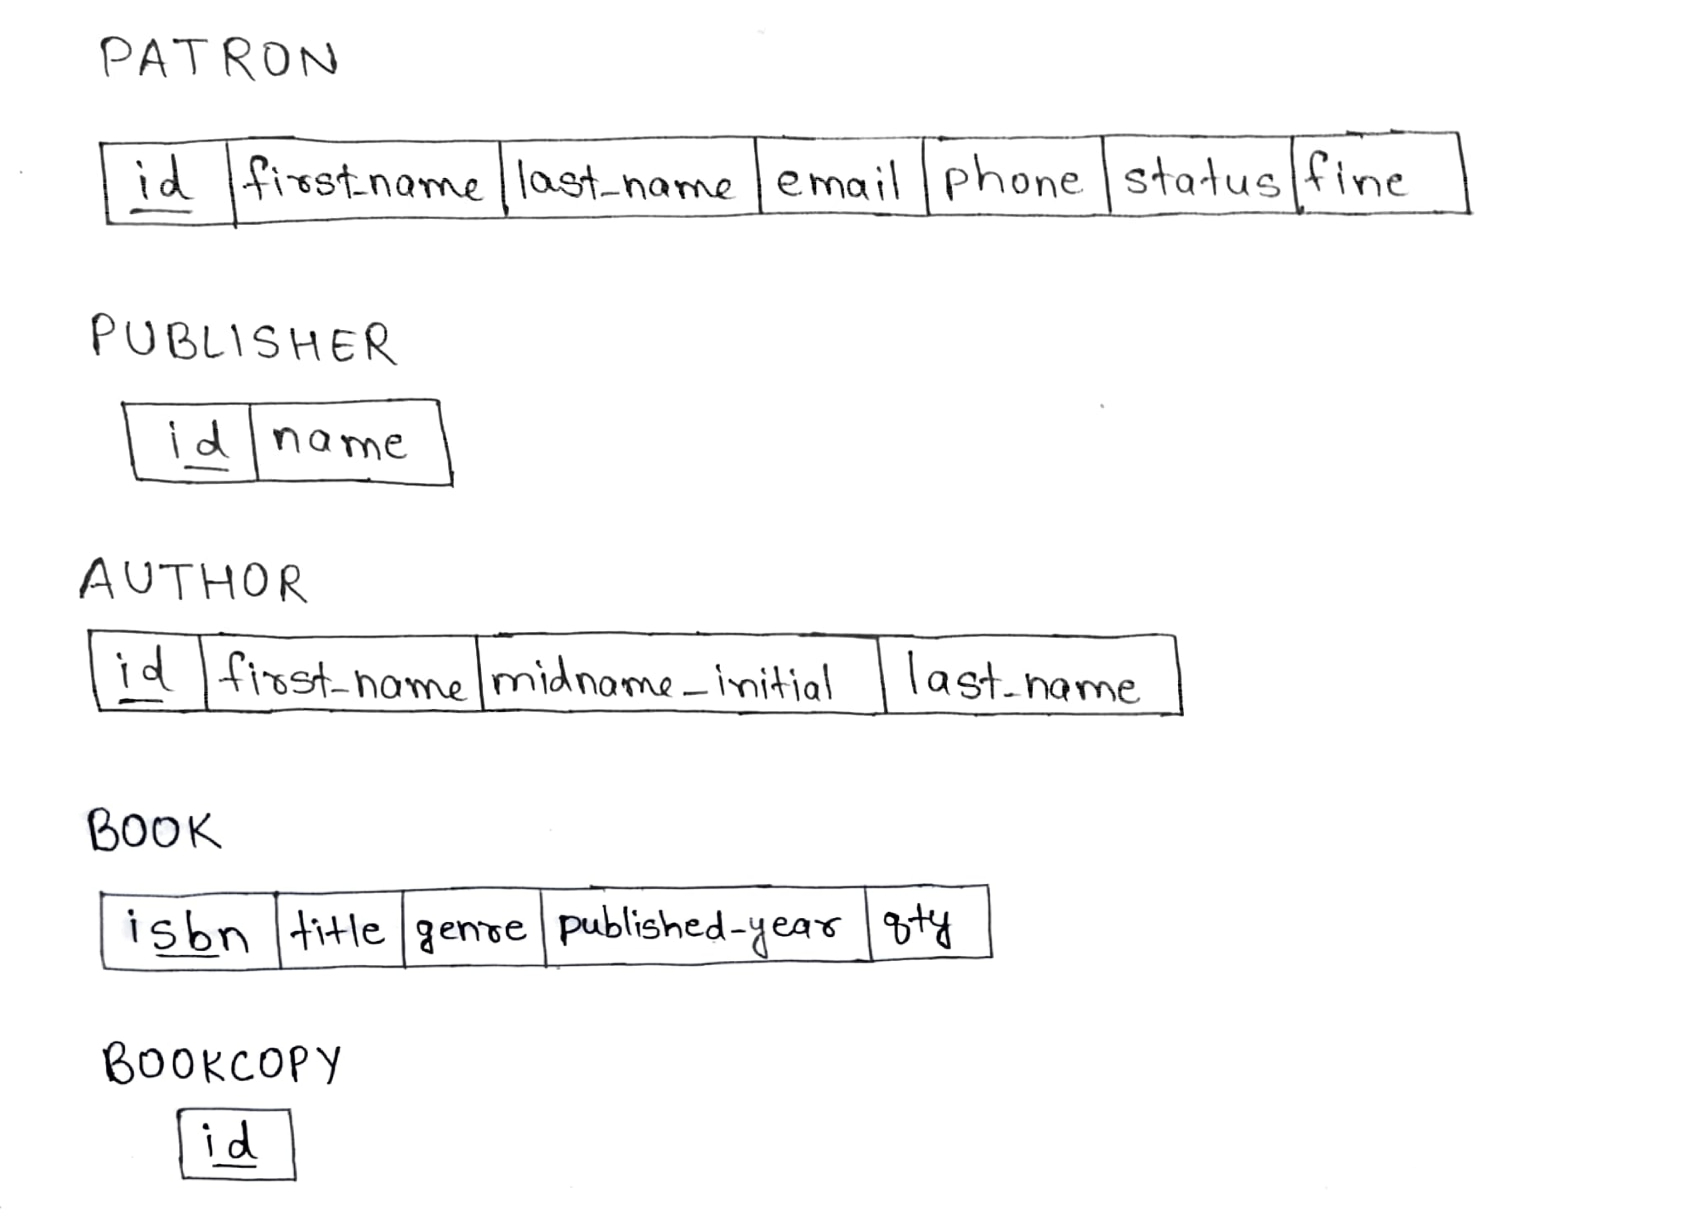 PATRON
id first_name last_name email phone status fine
PUBLISHER
id name
AUTHOR
id first_name midname_initial last_name
BOOK
isbn title genre published_year qty
BOOKCOPY
id